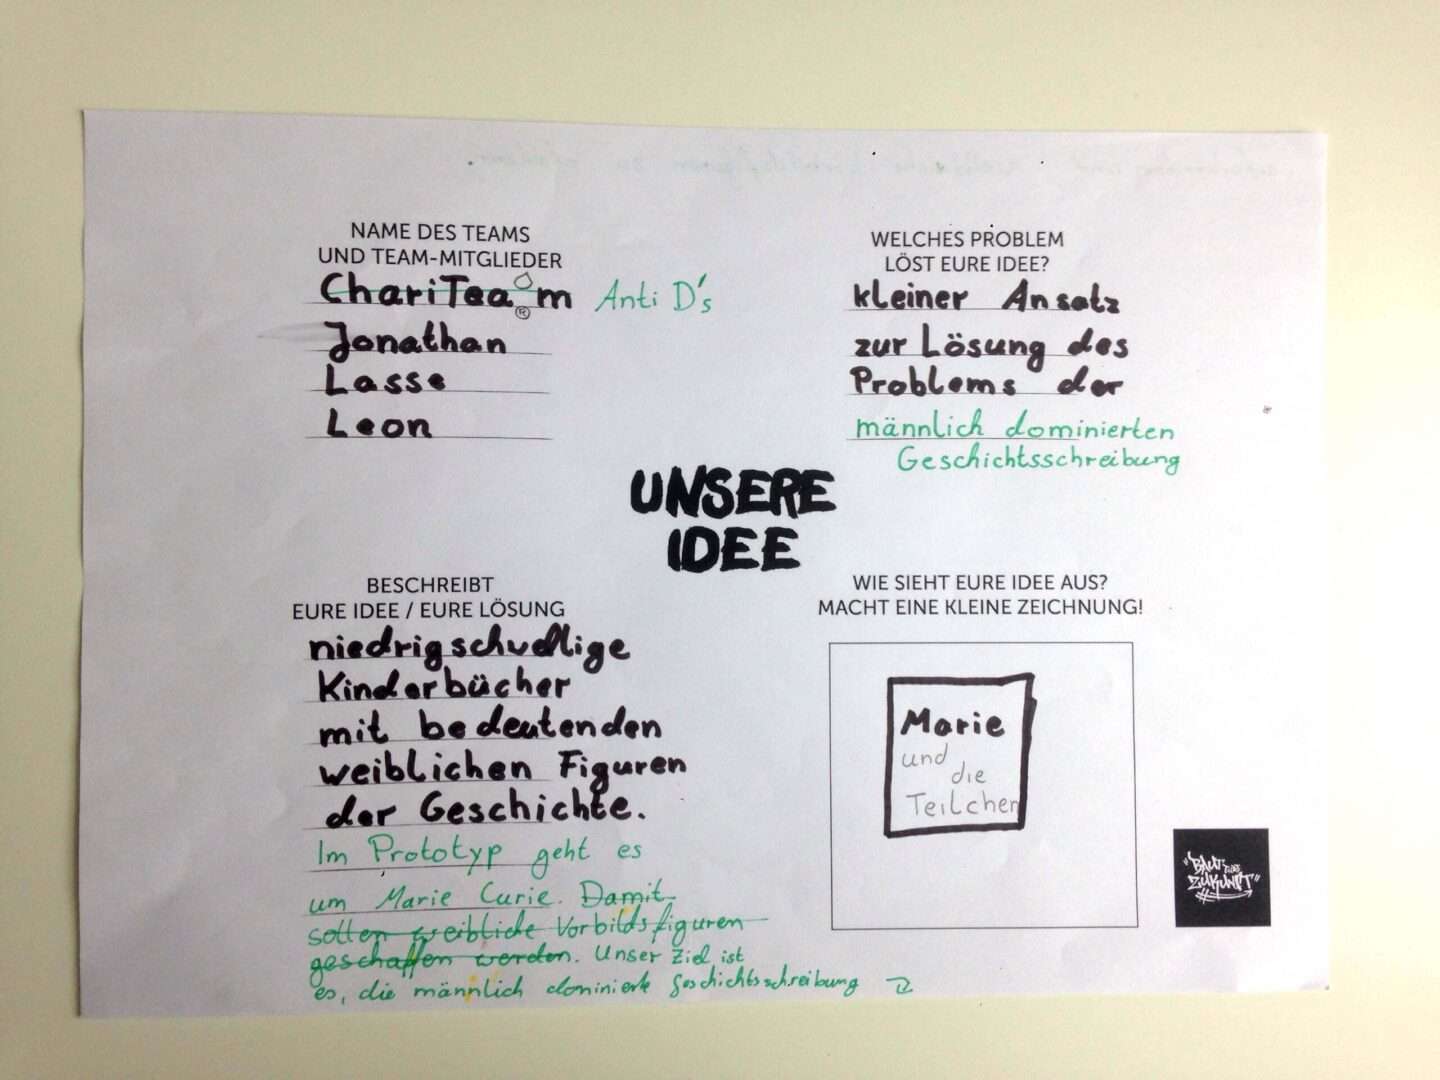 NAME DES TEAMS
UND TEAM-MITGLIEDER
ChariTea®m Anti D's
Jonathan
Lasse
Leon
WELCHES PROBLEM
LÖST EURE IDEE?
kleiner Ansatz
zur Lösung des
Problems der
männlich dominierten
Geschichtsschreibung
UNSERE
IDEE
BESCHREIBT
EURE IDEE / EURE LÖSUNG
niedrigschwellige
Kinderbücher
mit bedeutenden
weiblichen Figuren
der Geschichte.
Im Prototyp geht es
um Marie Curie. Damit
sollen weibliche Vorbildsfiguren
geschaffen werden. Unser Ziel ist
es, die männlich dominierte Geschichtsschreibung
WIE SIEHT EURE IDEE AUS?
MACHT EINE KLEINE ZEICHNUNG!
Marie
und
die
Teilchen
"BAUT
ZUKUNFT"